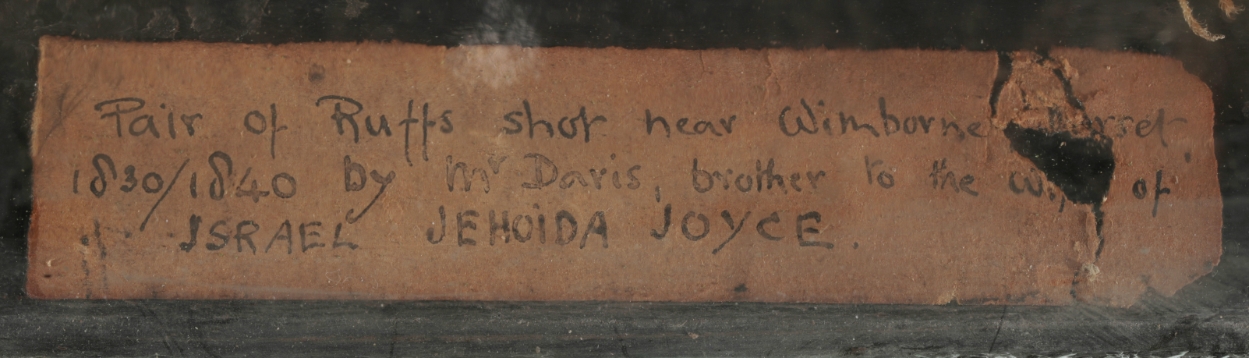 Pair of Ruffs shot near Wimborne
1830/1840 by Mr Davis, brother to the of
ISRAEL JEHOIDA JOYCE.